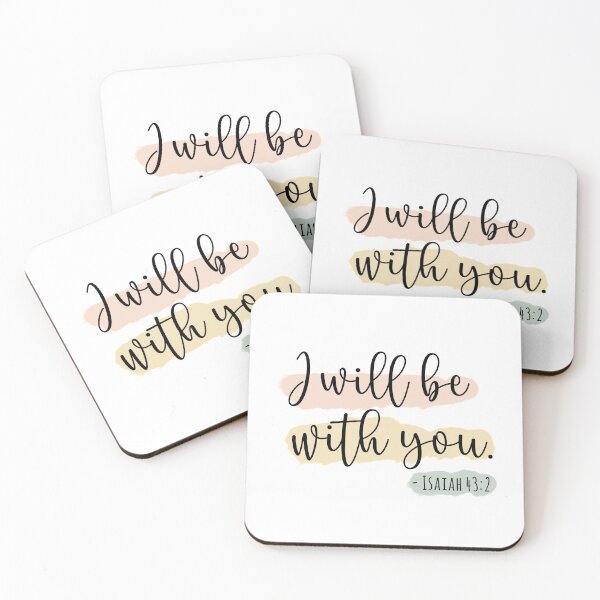 I will be
I will be
with you.
43:2
I will be
with you
I will be
with you.
- ISAIAH 43:2